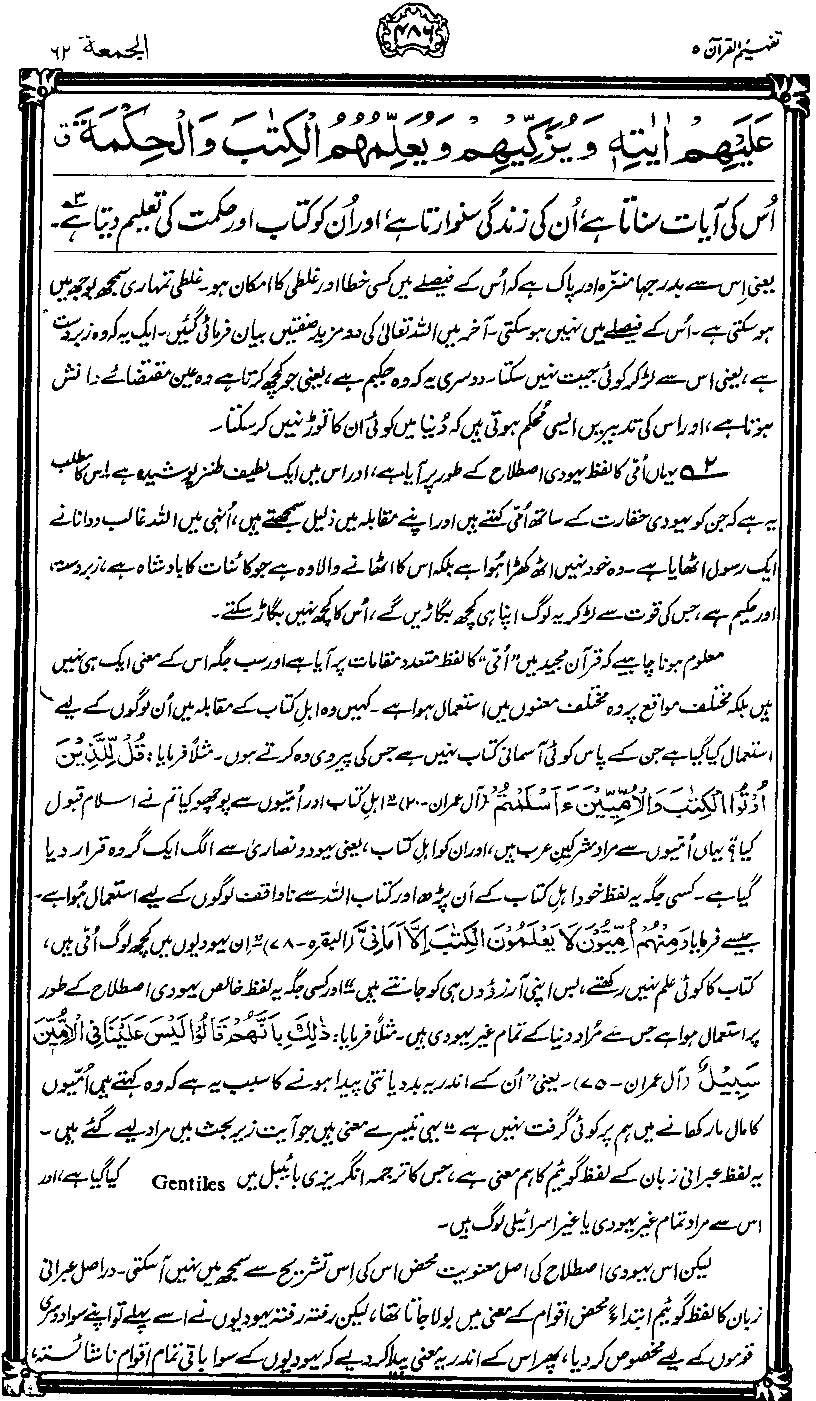 تفہیم القرآن ۵
۴۸۶
الجمعة ۶۲
عَلَيْهِمْ اٰيٰتِهٖ وَيُزَكِّيْهِمْ وَيُعَلِّمُهُمُ الْكِتٰبَ وَالْحِكْمَةَ ۚ
اُس کی آیات سناتا ہے، اُن کی زندگی سنوارتا ہے، اور اُن کو کتاب اور حکمت کی تعلیم دیتا ہے۔۳
یعنی اِس سے بدرجہا منزّہ اور پاک ہے کہ اُس کے فیصلے میں کسی خطا اور غلطی کا امکان ہو۔ غلطی تمہاری سمجھ بوجھ میں
ہو سکتی ہے۔ اُس کے فیصلے میں نہیں ہو سکتی۔ آخر میں اللہ تعالیٰ کی دو مزید صفتیں بیان فرمائی گئیں۔ ایک یہ کہ وہ زبردست
ہے، یعنی اس سے لڑ کر کوئی جیت نہیں سکتا۔ دوسری یہ کہ وہ حکیم ہے، یعنی جو کچھ کرتا ہے وہ عین مقتضائے دانش
ہوتا ہے، اور اس کی تدبیریں ایسی مُحکم ہوتی ہیں کہ دُنیا میں کوئی ان کا توڑ نہیں کر سکتا۔
۲ یہاں اُمّی کا لفظ یہودی اصطلاح کے طور پر آیا ہے، اور اس میں ایک لطیف طنز پوشیدہ ہے۔ اِس کا مطلب
یہ ہے کہ جن کو یہودی حقارت کے ساتھ اُمّی کہتے ہیں اور اپنے مقابلہ میں ذلیل سمجھتے ہیں، اُنہی میں اللہ غالب و دانا نے
ایک رسول اٹھایا ہے۔ وہ خود نہیں اٹھ کھڑا ہُوا ہے بلکہ اس کا اٹھانے والا وہ ہے جو کائنات کا بادشاہ ہے، زبردست
اور حکیم ہے، جس کی قوت سے لڑ کر یہ لوگ اپنا ہی کچھ بگاڑیں گے، اُس کا کچھ نہیں بگاڑ سکتے۔
معلوم ہونا چاہیے کہ قرآن مجید میں ”اُمّی“ کا لفظ متعدد مقامات پر آیا ہے اور سب جگہ اس کے معنی ایک ہی نہیں
ہیں بلکہ مختلف مواقع پر وہ مختلف معنوں میں استعمال ہوا ہے۔ کہیں وہ اہلِ کتاب کے مقابلہ میں اُن لوگوں کے لیے
استعمال کیا گیا ہے جن کے پاس کوئی آسمانی کتاب نہیں ہے جس کی پیروی وہ کرتے ہوں۔ مثلاً فرمایا: قُلْ لِّلَّذِيْنَ
اُوْتُوا الْكِتٰبَ وَالْاُمِّيّٖنَ ءَاَسْلَمْتُمْ (آل عمران۔۲۰) ”اہلِ کتاب اور اُمّیوں سے پوچھو کیا تم نے اسلام قبول
کیا؟“ یہاں اُمّیوں سے مراد مشرکینِ عرب ہیں، اور ان کو اہلِ کتاب، یعنی یہود و نصاریٰ سے الگ ایک گروہ قرار دیا
گیا ہے۔ کسی جگہ یہ لفظ خود اہلِ کتاب کے اَن پڑھ اور کتاب اللہ سے ناواقف لوگوں کے لیے استعمال ہُوا ہے۔
جیسے فرمایا وَمِنْهُمْ اُمِّيُّوْنَ لَا يَعْلَمُوْنَ الْكِتٰبَ اِلَّآ اَمَانِيَّ (البقرہ۔۷۸) ”اِن یہودیوں میں کچھ لوگ اُمّی ہیں،
کتاب کا کوئی علم نہیں رکھتے، بس اپنی آرزوؤں ہی کو جانتے ہیں“ اور کسی جگہ یہ لفظ خالص یہودی اصطلاح کے طور
پر استعمال ہوا ہے جس سے مُراد دنیا کے تمام غیر یہودی ہیں۔ مثلاً فرمایا: ذٰلِكَ بِاَنَّهُمْ قَالُوْا لَيْسَ عَلَيْنَا فِي الْاُمِّيّٖنَ
سَبِيْلٌ (آل عمران۔۷۵)۔ یعنی ”اُن کے اندر یہ بددیانتی پیدا ہونے کا سبب یہ ہے کہ وہ کہتے ہیں اُمّیوں
کا مال مار کھانے میں ہم پر کوئی گرفت نہیں ہے“ یہی تیسرے معنی ہیں جو آیت زیرِ بحث میں مراد لیے گئے ہیں۔
یہ لفظ عبرانی زبان کے لفظ گوئیم کا ہم معنی ہے، جس کا ترجمہ انگریزی بائیبل میں Gentiles کیا گیا ہے، اور
اس سے مراد تمام غیر یہودی یا غیر اسرائیلی لوگ ہیں۔
لیکن اس یہودی اصطلاح کی اصل معنویت محض اس کی اِس تشریح سے سمجھ میں نہیں آ سکتی۔ دراصل عبرانی
زبان کا لفظ گوئیم ابتداءً محض اقوام کے معنی میں بولا جاتا تھا، لیکن رفتہ رفتہ یہودیوں نے اسے پہلے تو اپنے سوا دوسری
قوموں کے لیے مخصوص کر دیا، پھر اس کے اندر یہ معنی پیدا کر دیے کہ یہودیوں کے سوا باقی تمام اقوام ناشائستہ،